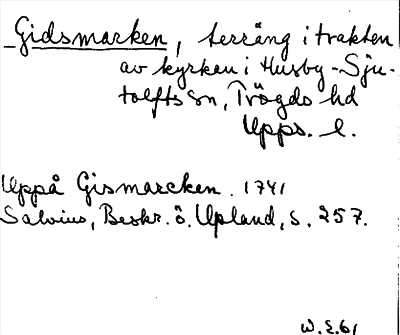 Gidsmarken, terräng i trakten
av kyrkan i Husby-Sju-
tolfts sn, Trögds hd
Upps. l.
Uppå Gismarcken. 1741
Salvius, Beskr. ö. Upland, s. 257.
W.E.61